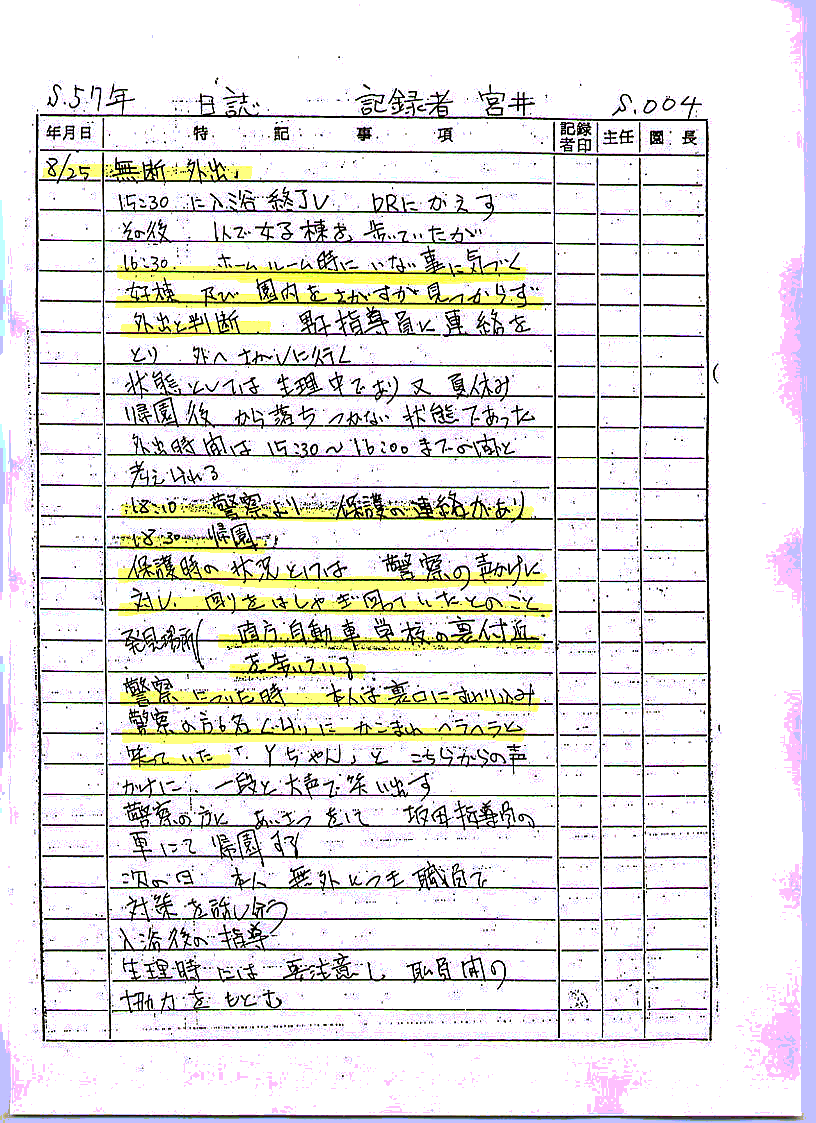 S.57年 日誌 記録者 宮井 S.004
年月日 特記事項 記録者印 主任 園長
8/25 無断外出
15:30に入浴終了し DRにかえす
その後 1人で女子棟を歩いていたが
16:30 ホームルーム時にいない事に気づく
女子棟 及び 園内をさがすが見つからず
外出と判断 指導員に連絡を
とり 外へさがしに行く
状態としては生理中であり又夏休み
帰園後から落ちつかない状態であった
外出時間は15:30〜16:00までの間と
考えられる
18:10 警察より 保護の連絡があり
18:30 帰園
保護時の状況としては 警察の声かけに
対し 回りをはしゃぎ回っていたとのこと
発見場所( 直方自動車学校の裏付近
を歩いている
警察についた時 本人は裏口にすわり込み
警察の方6名ぐらいにかこまれヘラヘラと
笑っていた「Yちゃん」とこちらからの声
かけに、一段と大声で笑い出す
警察の方にあいさつをして 指導員の
車にて帰園する
次の日 本人 無外につき 職員で
対策を話し合う
入浴後の指導
生理時には要注意し 職員間の
協力をもとむ